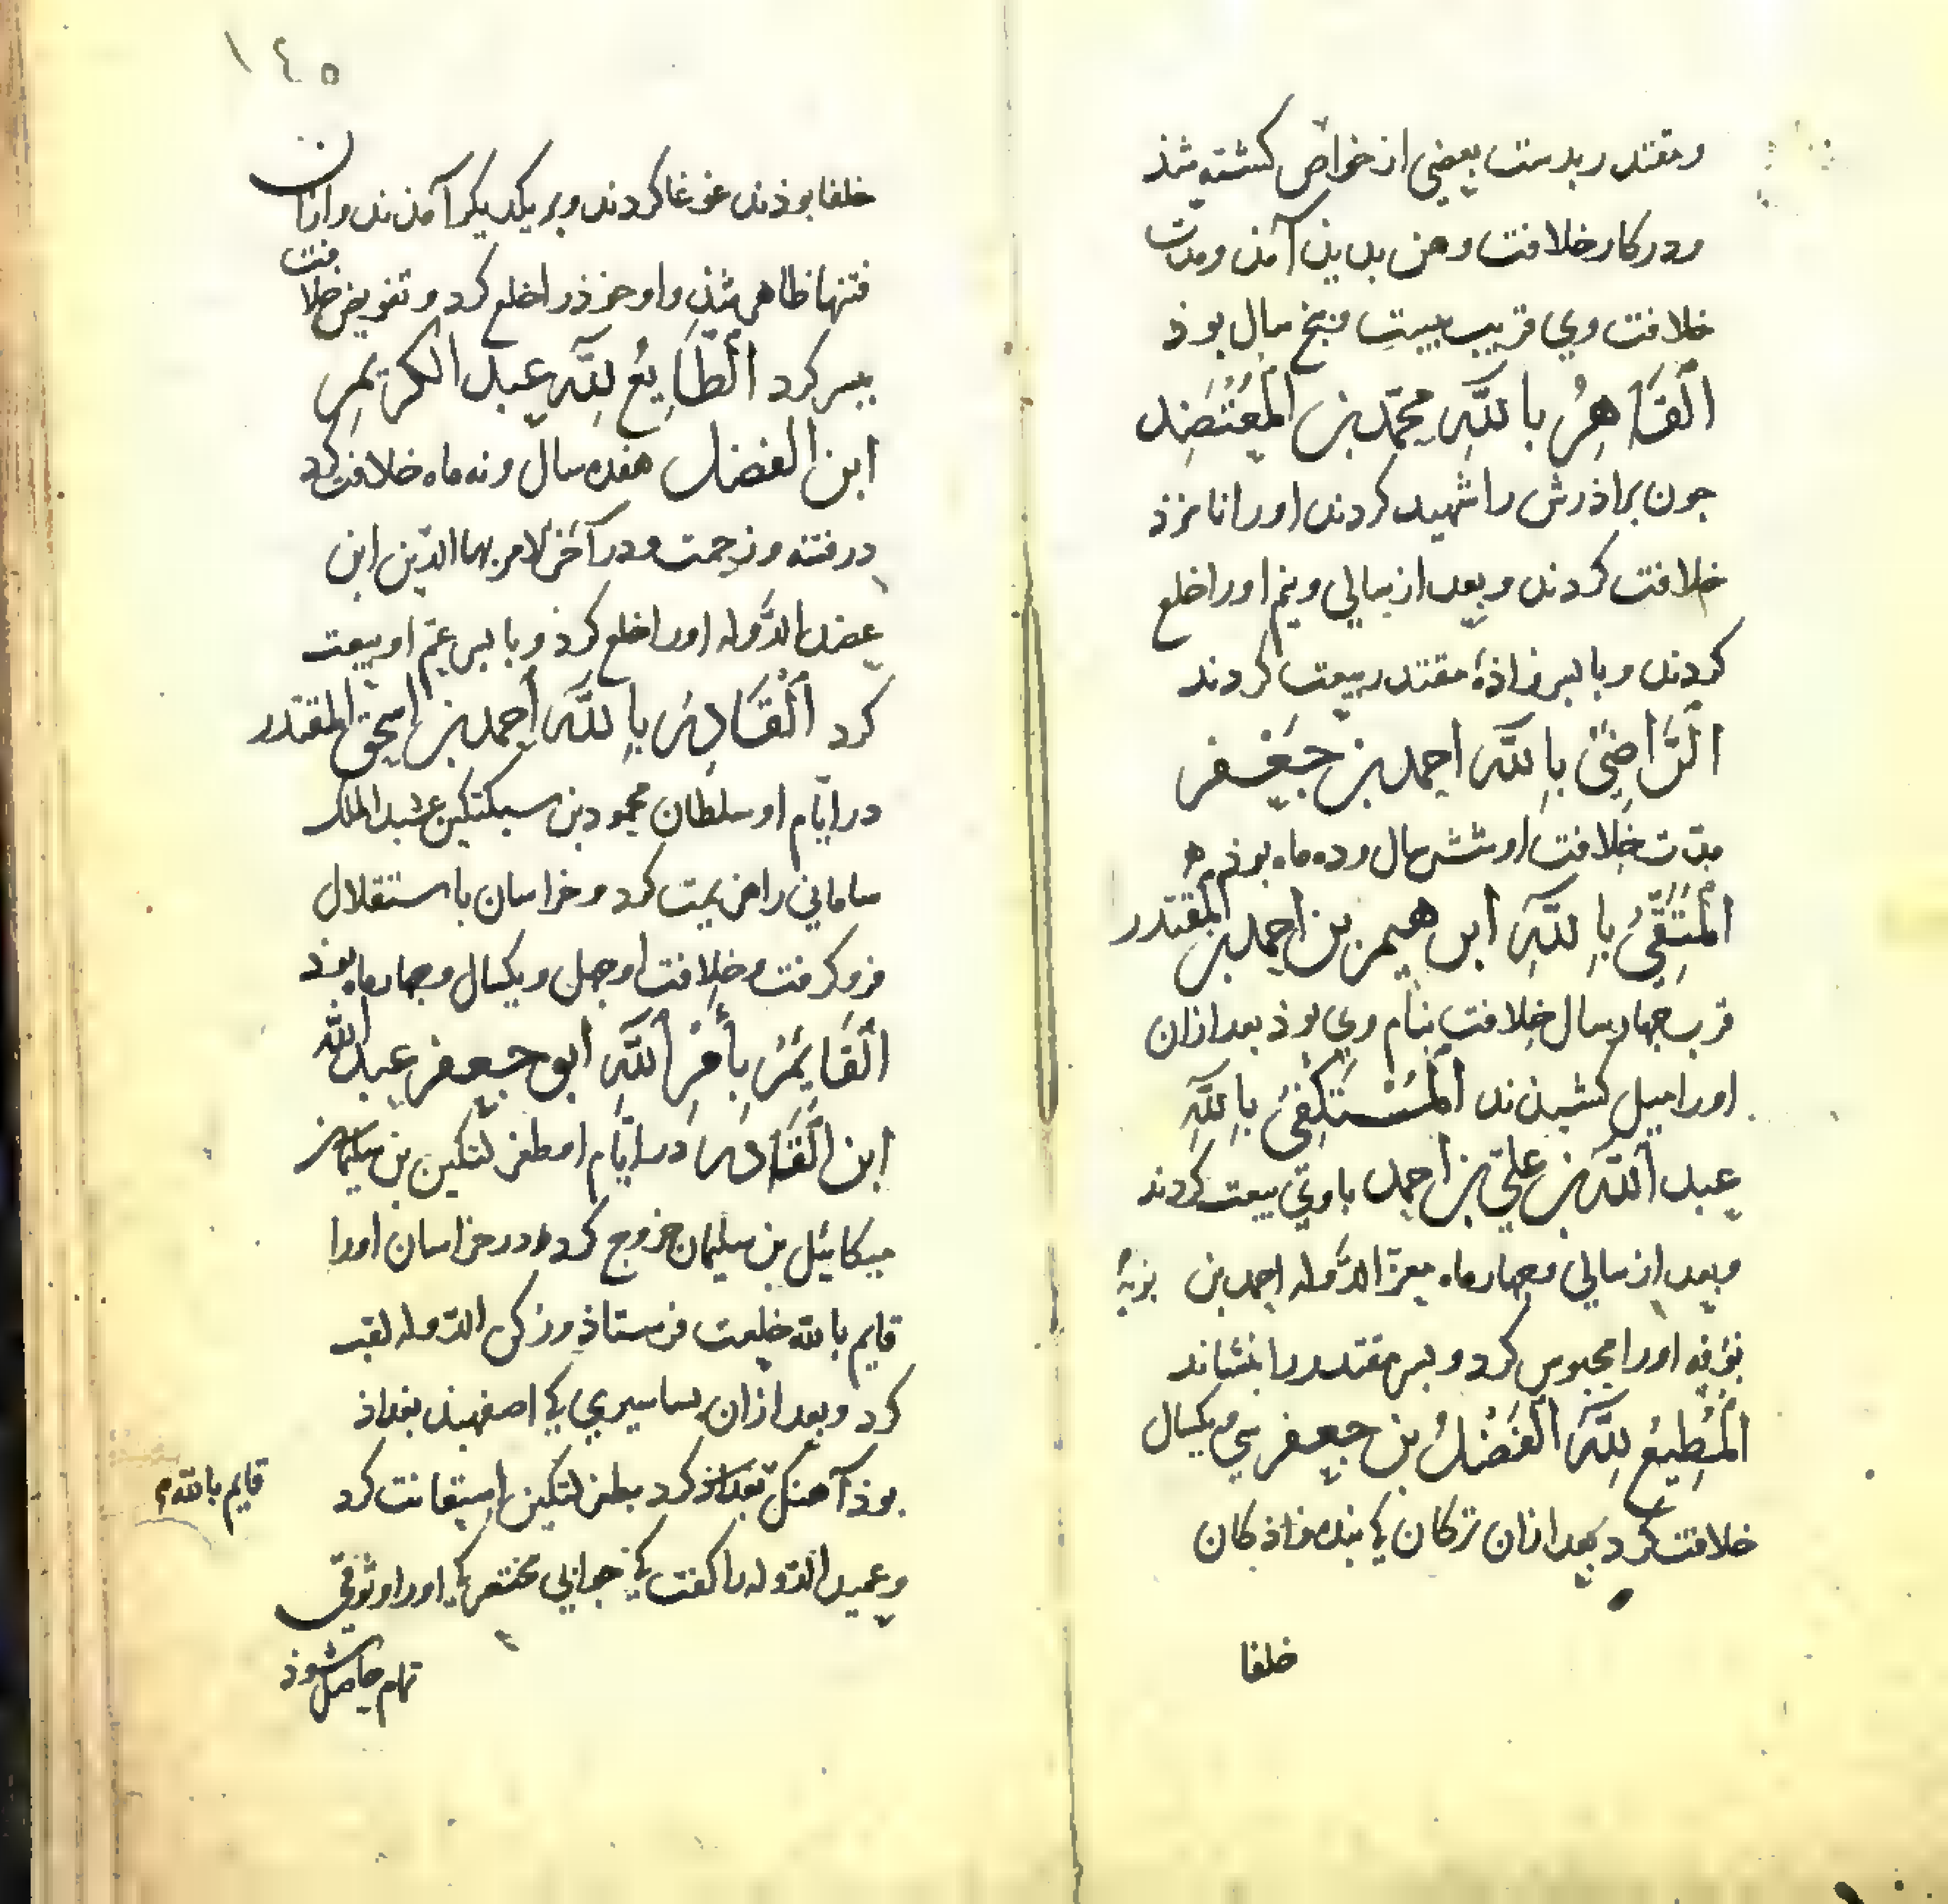 ومقتدر بدست بعضی از خواص کشته شذ
ودر کار خلافت وهن بدین آمذ ومدت
خلافت وي قریب بیست وپنج سال بوذ
اَلْقَاهِرُ بِاللّٰهِ محمّد بن المُعْتَضِد
جون براذرش را شهید کردند اورا نامزذ
خلافت کردند وبعد از سالی ونیم اورا خلع
کردند وبا بسر زاذهٔ مقتدر بیعت کردند
اَلرَّاضِیُ بِاللّٰه احمد بن جَعْفر
مدّت خلافت او شش سال وده ماه بوذ
اَلْمُتَّقِیُ بِاللّٰهِ ابرهیم بن احمد بن المقتدر
قرب جهار سال خلافت بنام وی بوذ بعد ازان
اورا میل کشیذند اَلْمُسْتَکْفِیُ بِاللّٰهِ
عبد اللّٰه بن علیّ بن احمد با وي بیعت کردند
وبعد از سالی وجهار ماه معزّ الدّوله احمد بن بویه
بویه اورا محبوس کرد وبسر مقتدر را بنشاند
اَلْمُطِیعُ لِلّٰهِ اَلْفَضْلُ بن جعفر سی ویکسال
خلافت کرد بعد ازان ترکان کی بنده زاذکان
خلفا
١٤٥
خلفا بوذند غوغا کردند وبر یکدیکر آمذند وازان
فتنها ظاهر شذ واو خوذ را خلع کرد وتفویض خلافت
ببسر کرد اَلطَّایِعُ لِلّٰه عبد الکریم
ابن الفضل هفده سال ونه ماه خلافت کرد
در فتنه وزحمت ودر آخر لامر بها الدّین ابن
عضد الدّوله اورا خلع کرد وبا بسر عمّ او بیعت
کرد اَلْقَادِرُ بِاللّٰه أحمد بن اسحق المقتدر
در ایّام او سلطان محمود بن سبکتکین عبد الملک
سامانی را هزیمت کرد وخراسان باستقلال
فرو کرفت وخلافت او جهل ویکسال وجهار ماه بوذ
اَلْقَایِمُ بِأَمْرِ اللّٰه ابو جعفر عبد اللّٰه
ابن اَلْقَادِر در ایّام او طغرلتکین بن سلیمان
میکائیل بن سلیمان خروج کرد ودر خراسان اورا
قایم بالله خلعت فرستاذ ورکن الدّوله لقب
کرد وبعد ازان بساسیري کی اصفهبذ بغداذ
بوذ آهنک بغداذ کرد بطغرلتکین استغاثت کرد
قایم بالله
وعمید الدّوله را کفت کی جوابی مختصر کی اورا وثوقی
تمام حاصل شوذ